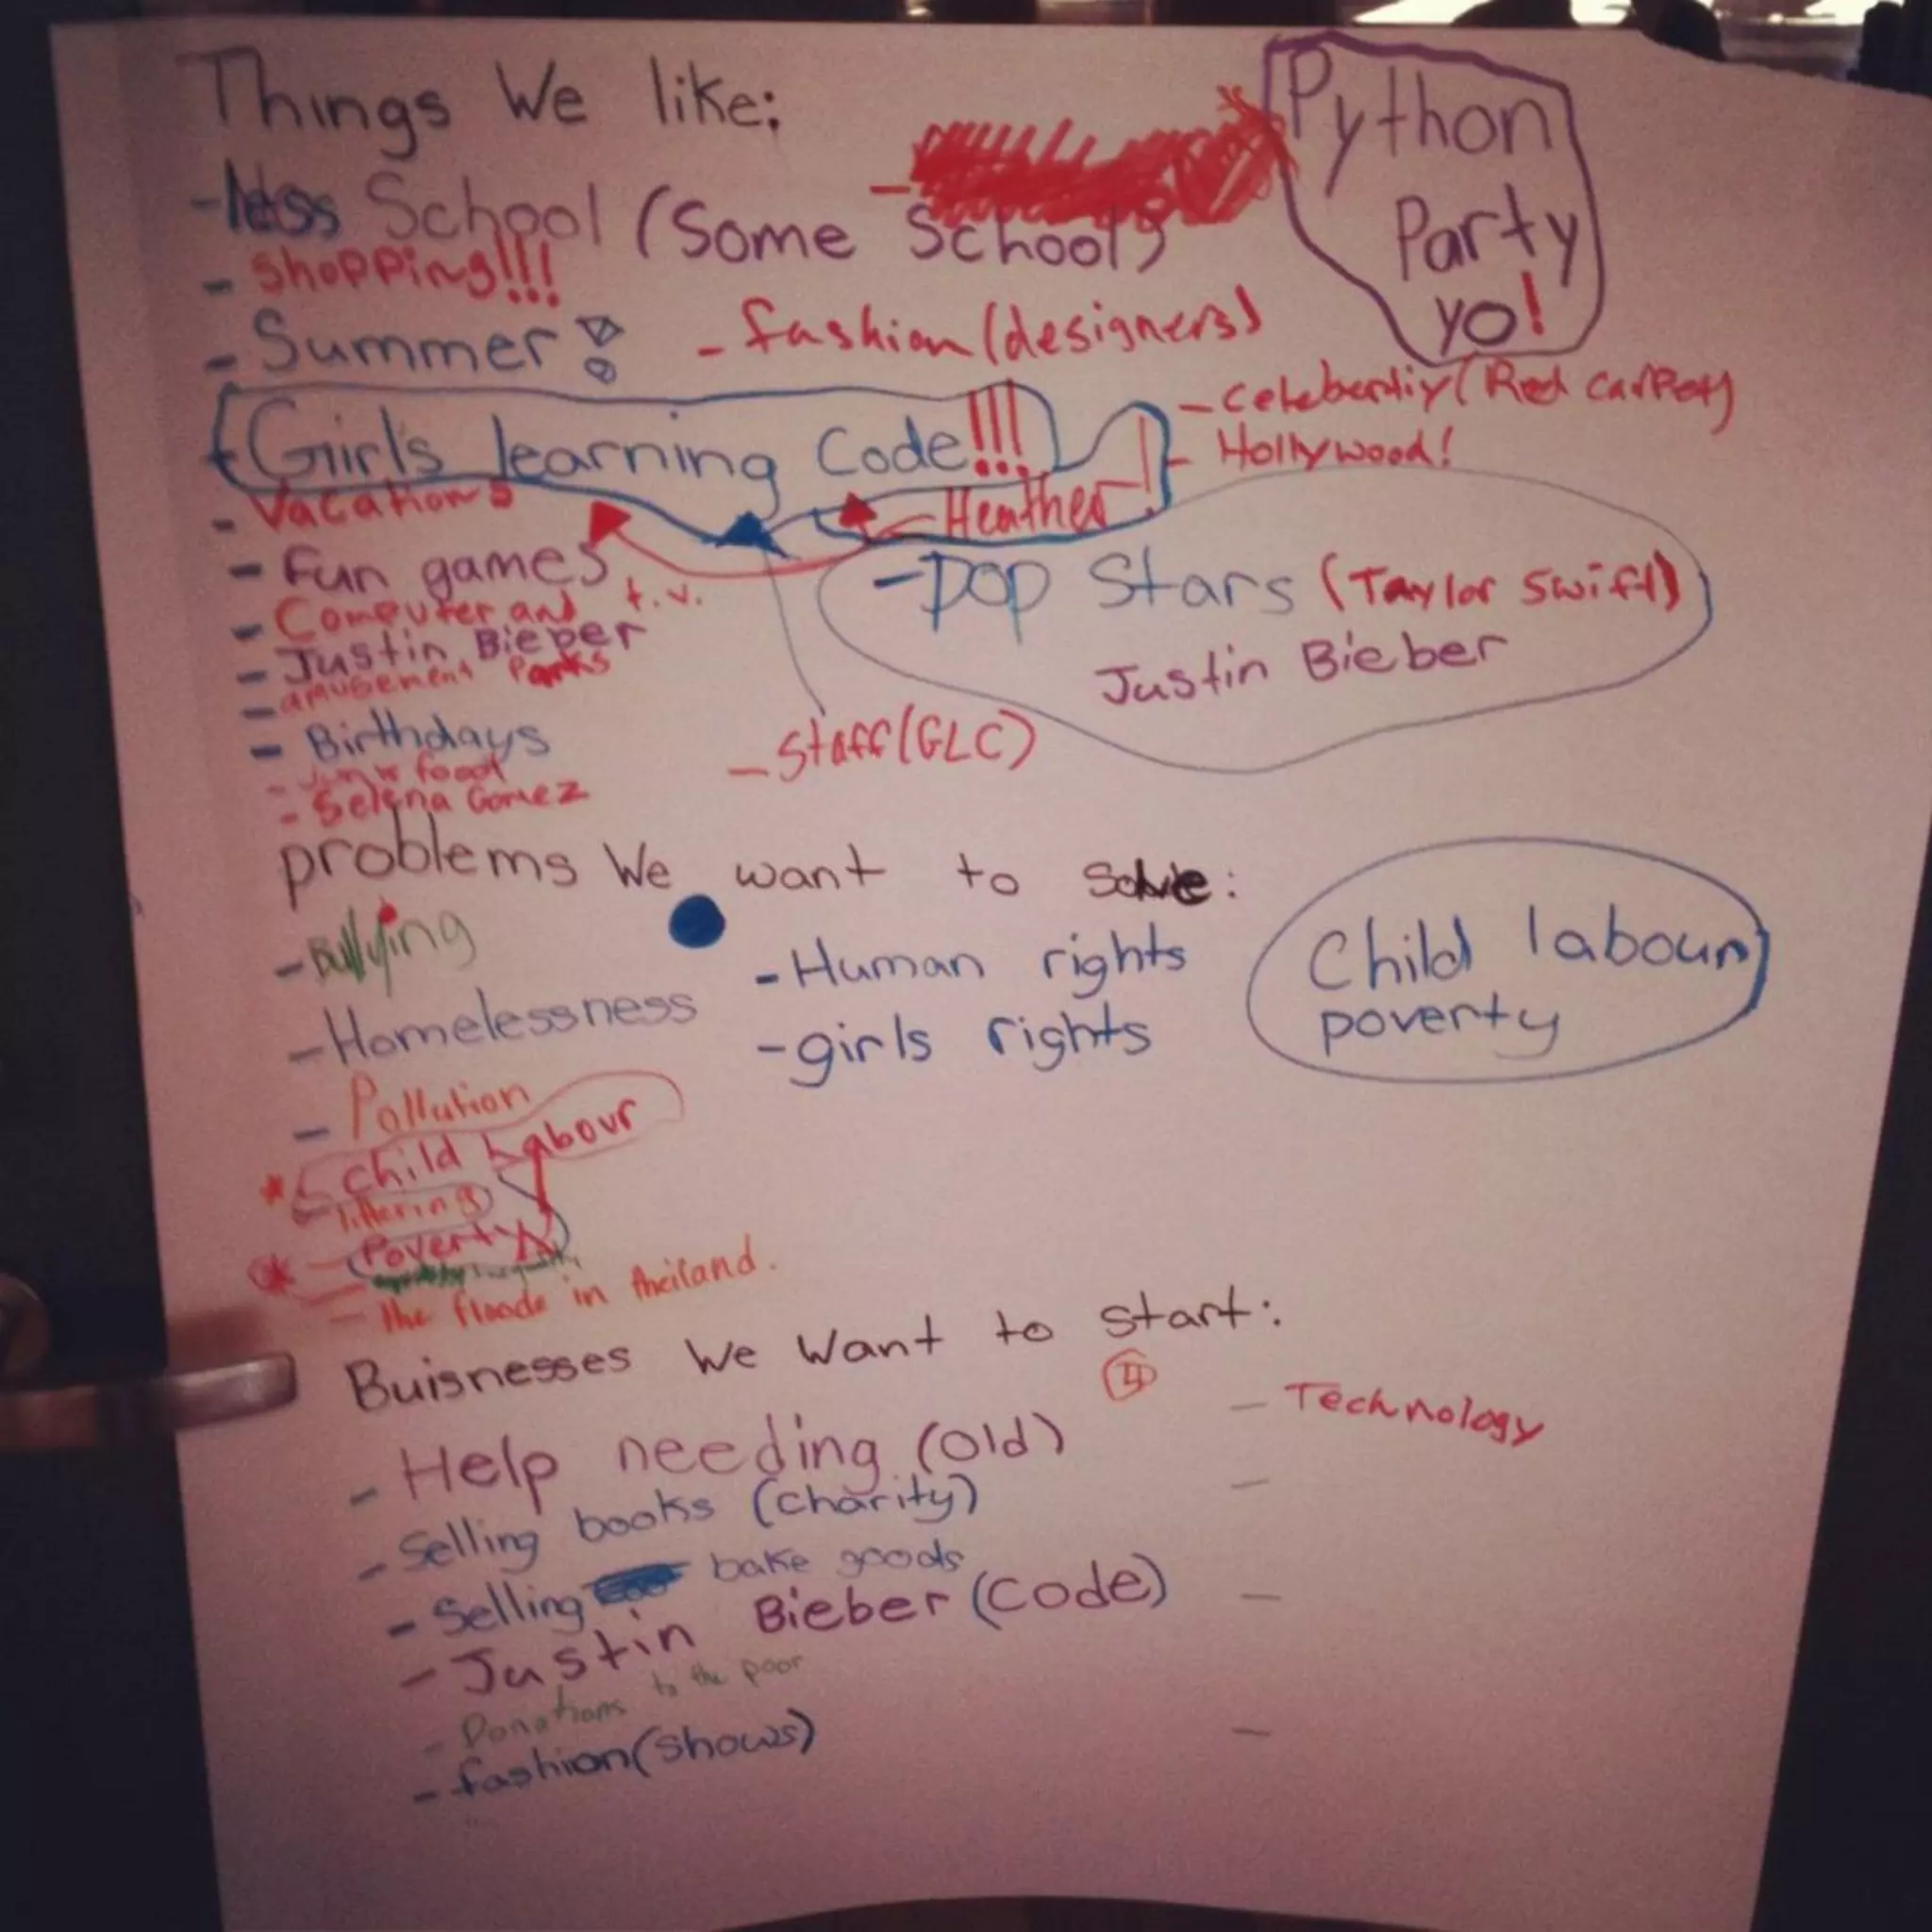 Things We like:
Python
Party
yo!
-less School (Some School)
- Shopping!!!
- Summer!
- fashion (designers)
- Girls learning Code!!!
- Celebertiy (Red Carpet)
- Hollywood!
- Vacations
- Heather
- Fun games
- Computer and t.v.
- Justin Bieber
- amusement Parks
- Pop Stars (Taylor Swift)
Justin Bieber
- Birthdays
- Staff (GLC)
- Junk food
- Selena Gomez
problems We want to Solve:
- Bullying
- Human rights
- Homelessness
- girls rights
Child labour
poverty
- Pollution
- Child Labour
- littering
- Poverty
- The floods in thailand.
Buisnesses We Want to Start:
- Technology
- Help needing (Old)
- Selling books (charity)
- Selling bake goods
- Justin Bieber (Code)
- Donations to the poor
- fashion (shows)